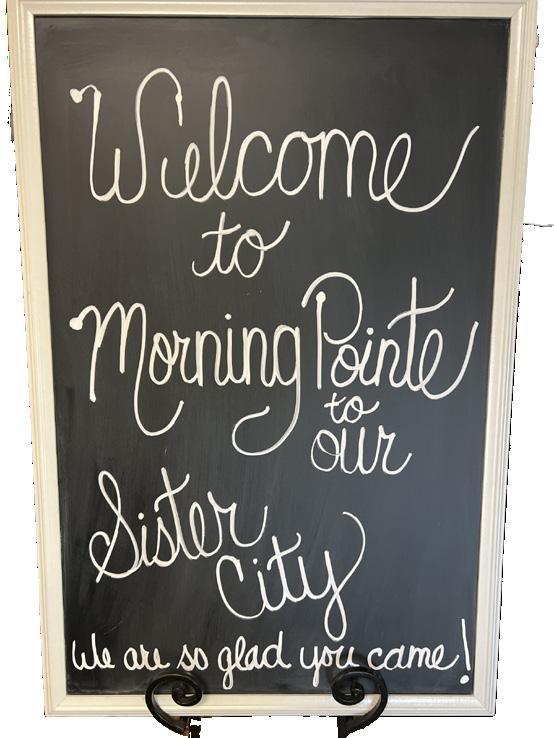 Welcome
to
Morning Pointe
to
our
Sister
City
We are so glad you came!